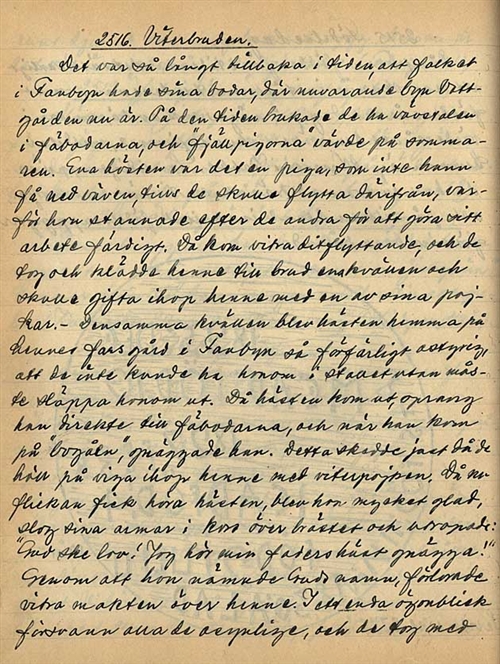 2516. Viterbruden.
Det var så långt tillbaka i tiden, att folket
i Fanbyn hade sina bodar, där nuvarande byn Vett-
gården nu är. På den tiden brukade de ha vävstolen
i fäbodarna, och "fjällpigorna" vävde på somma-
ren. Ena hösten var det en piga, som inte hann
få ned väven, tills de skulle flytta därifrån, var-
för hon stannade efter de andra för att göra sitt
arbete färdigt. Då kom vitra ditflyttande, och de
tog och klädde henne till brud ena kvällen och
skulle gifta ihop henne med en av sina poj-
kar. – Densamma kvällen blev hästen hemma på
hennes fars gård i Fanbyn så förfärligt ostyrig,
att de inte kunde ha honom i stallet utan mås-
te släppa honom ut. Då hästen kom ut, sprang
han direkte till fäbodarna, och när han kom
på "bogåln", gnäggade han. Detta skedde just då de
höll på viga ihop henne med viterpojken. Då nu
flickan fick höra hästen, blev hon mycket glad,
slog sina armar i kors över bröstet och utropade:
"Gud ske lov! Jag hör min faders häst gnägga!"
Genom att hon nämnde Guds namn, förlorade
vitra makten över henne. I ett enda ögonblick
försvann alla de osynliga, och de tog med